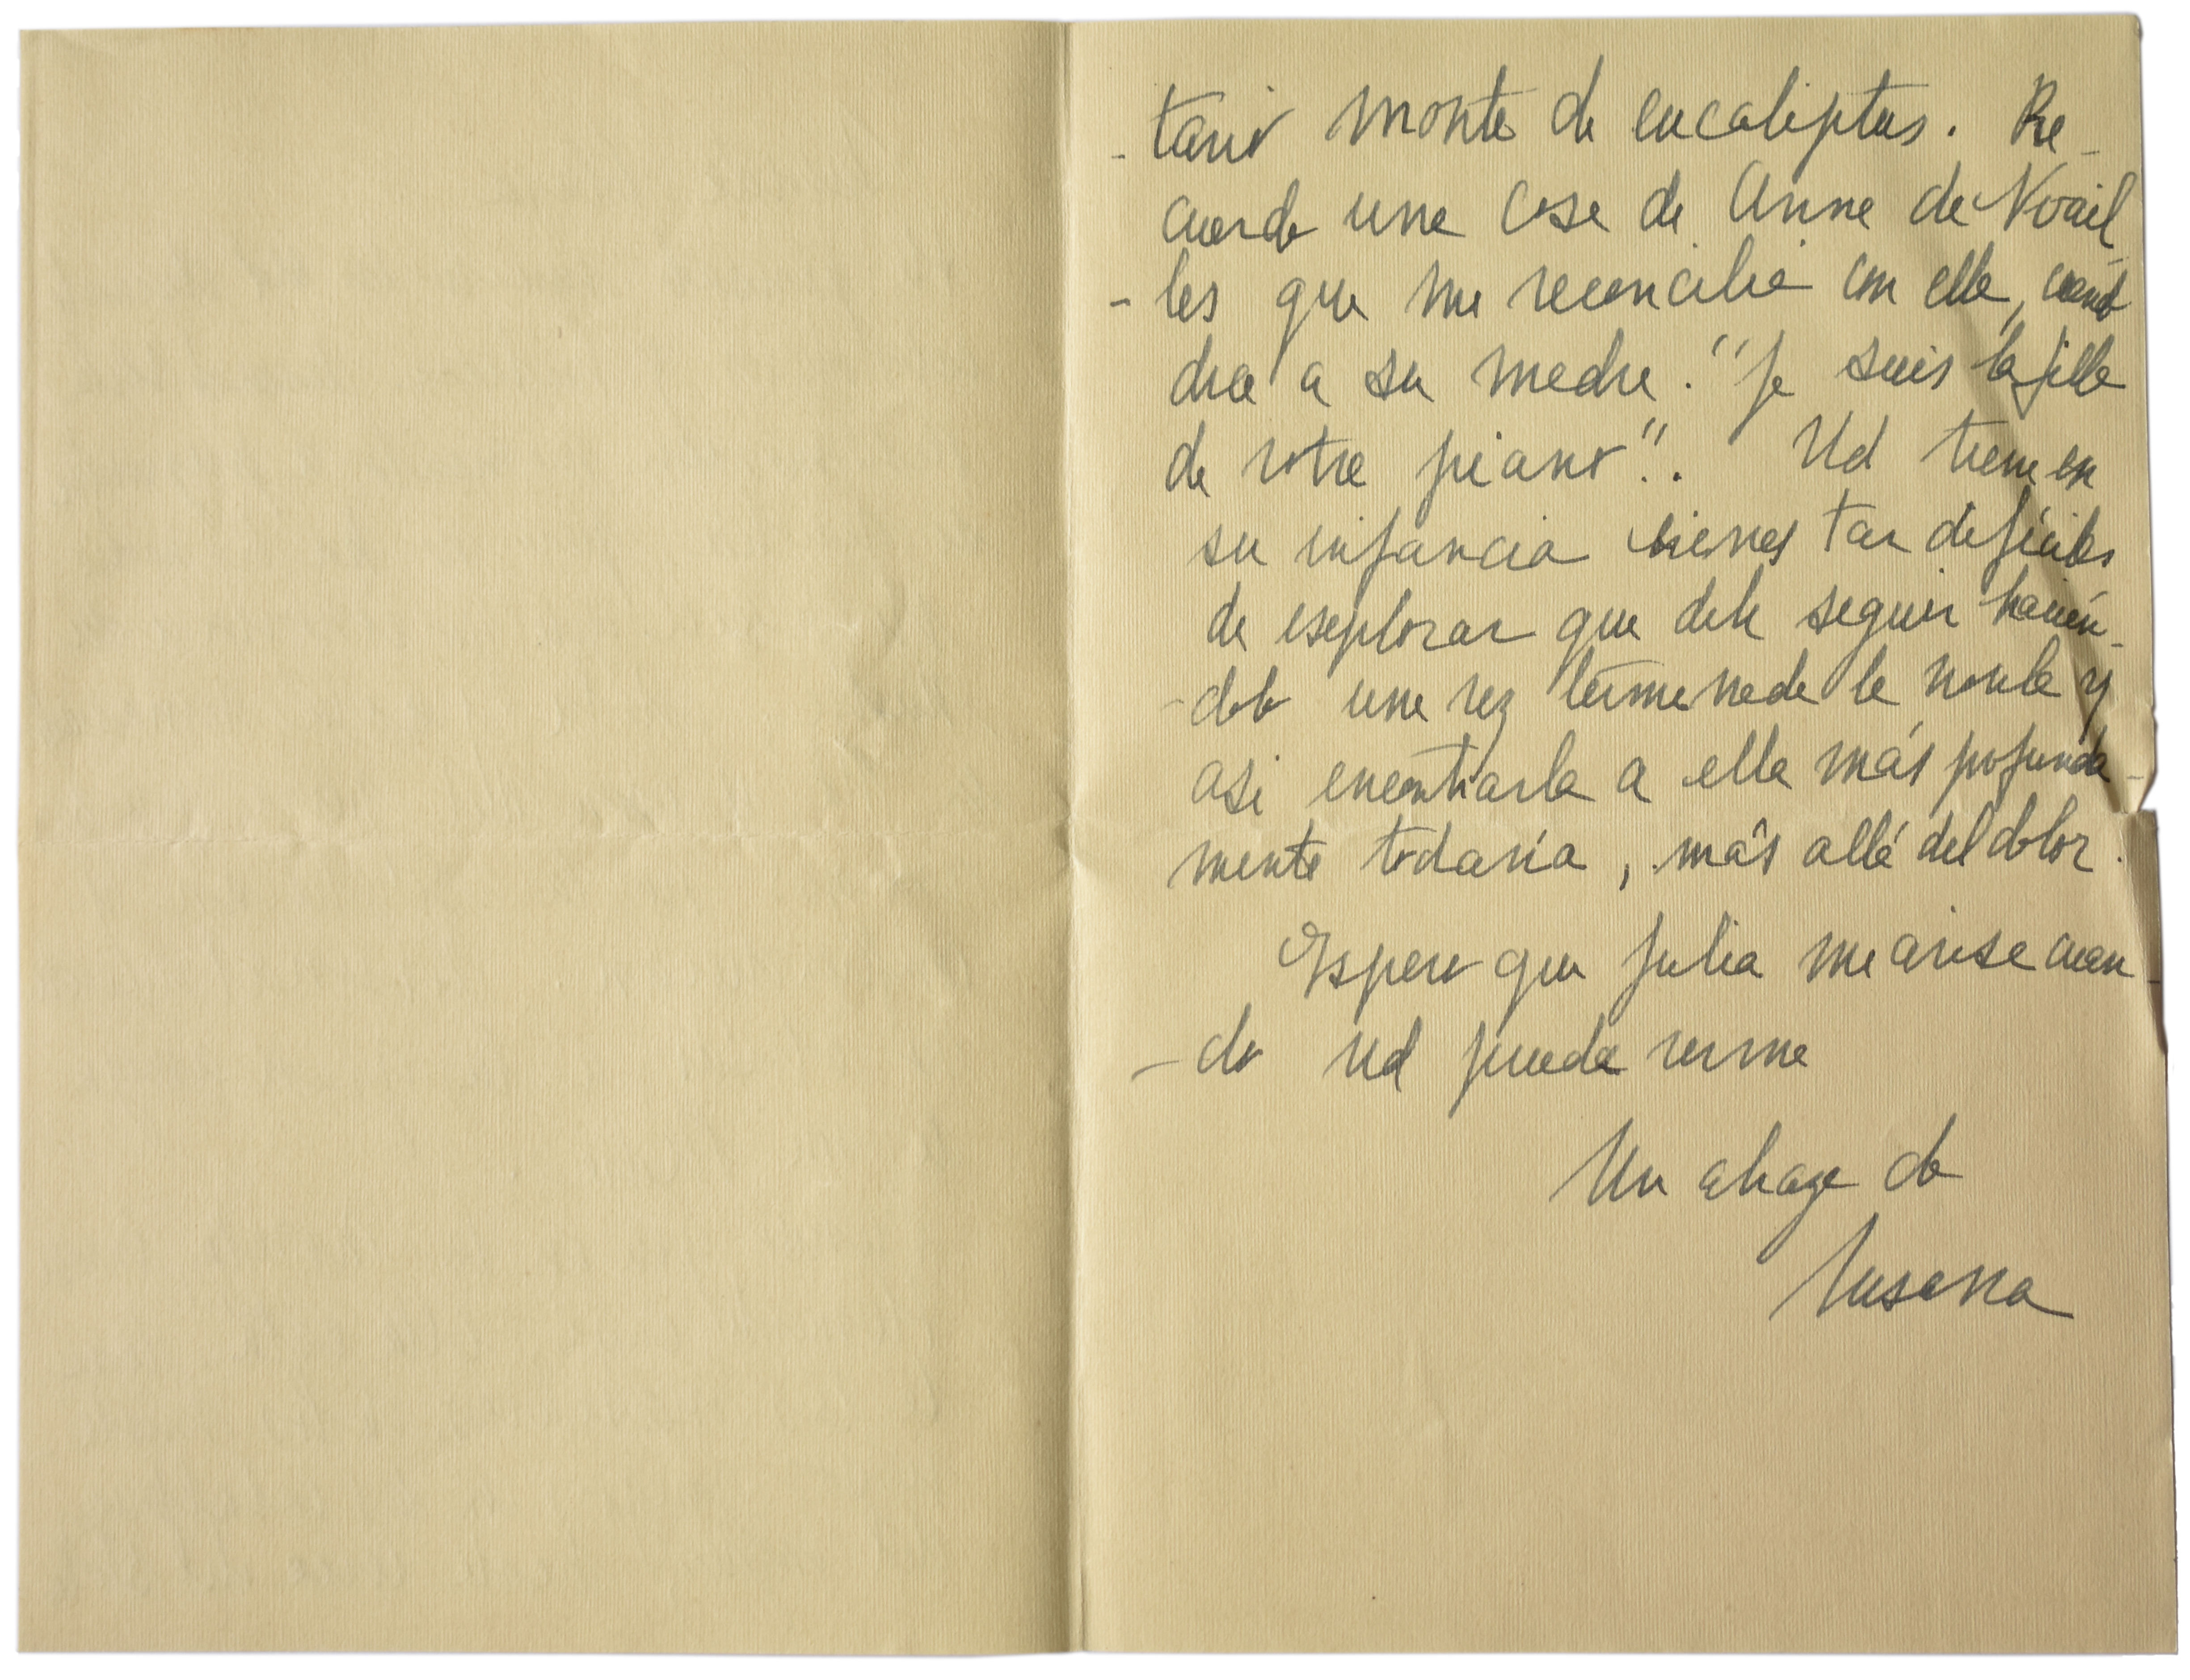 -tario monte de eucaliptus. Re-
cuerdo una cosa de Anne de Noail
-les que me reconcilió con ella, cuando
dice a su madre: "Je suis la fille
de votre piano". Ud tiene en
su infancia bienes tan difíciles
de esplorar que debe seguir hacién-
-dolo una vez terminada la novela y
asi encontrarla a ella más profunda-
mente todavía, más allá del dolor.
Espero que Julia me avise cuan-
-do Ud pueda verme
Un abrazo de
Susana